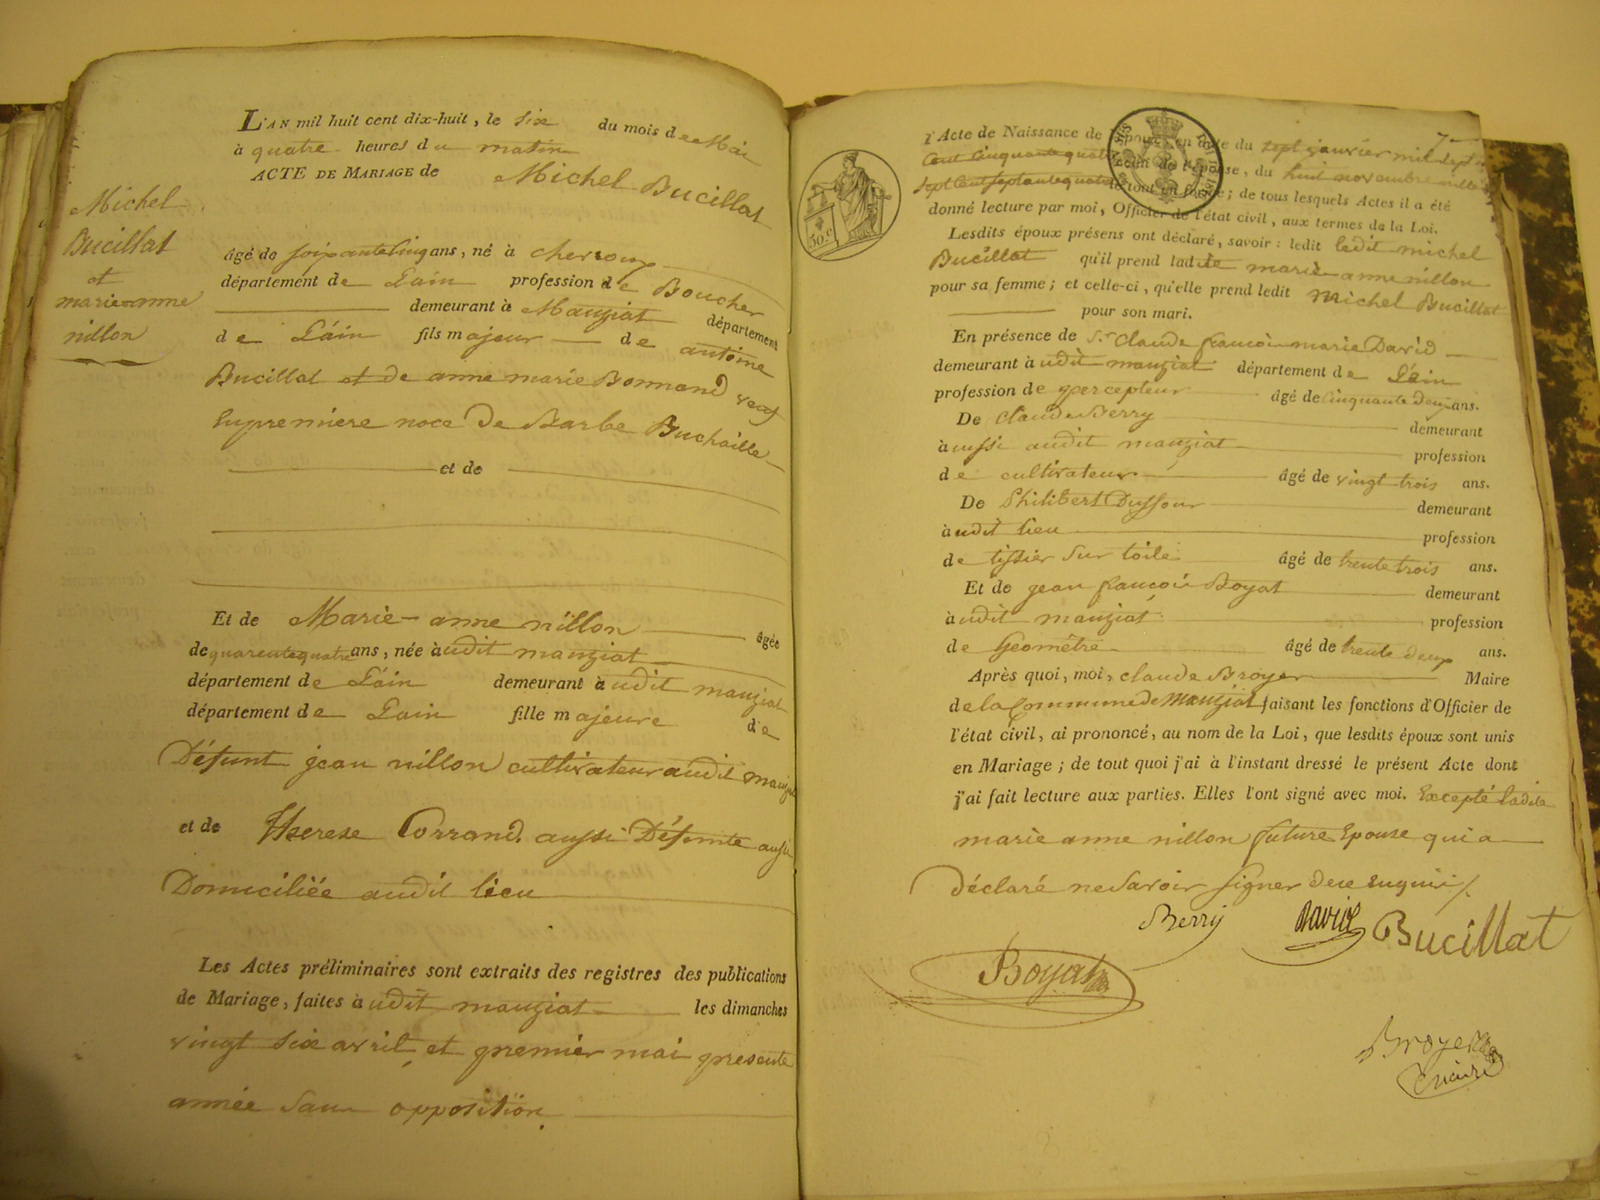 Michel
Bucillat
et
marie anne
nillon
L'AN mil huit cent dix-huit, le six du mois de Mai
à quatre heures du matin
ACTE DE MARIAGE de Michel Bucillat
âgé de soixante cinq ans, né à cheroux
département de Lain profession de Boucher
demeurant à Manziat département
de L'ain fils majeur de antoine
Bucillat et de anne marie Bonnand veuf
en premiere noce De Barbe Buchaille
et de
Et de Marie-anne nillon âgée
de quarente quatre ans, née à udit manziat
département de L'ain demeurant à udit manziat
département de Lain fille majeure de
Défunt jean nillon cultivateur audit manziat
et de Therese Corrand aussi Défunte aussi
Domiciliée audit lieu
Les Actes préliminaires sont extraits des registres des publications
de Mariage, faites à udit manziat les dimanches
vingt six avril et premier mai presente
année sans opposition
7
l'Acte de Naissance de l'époux, en date du sept janvier mil sept
Cent Cinquante quatre de l'épouse, du huit novembre mille
sept Cent septante quatre le tout en forme; de tous lesquels Actes il a été
donné lecture par moi, Officier de l'état civil, aux termes de la Loi.
Lesdits époux présens ont déclaré, savoir: ledit ledit michel
Bucillat qu'il prend ladite marie anne nillon
pour sa femme; et celle-ci, qu'elle prend ledit Michel Bucillat
pour son mari.
En présence de Sr Claude françois marie David
demeurant à udit manziat département de L'ain
profession de percepteur âgé de cinquante deux ans.
De Claude Berry demeurant
à aussi audit manziat profession
de cultivateur âgé de vingt trois ans.
De Philibert Duffour demeurant
à udit lieu profession
de tissier sur toile âgé de trente trois ans.
Et de jean françois Boyat demeurant
à udit manziat profession
de Geomêtre âgé de trente deux ans.
Après quoi, moi, claude Broyer Maire
de la Commune de Manziat faisant les fonctions d'Officier de
l'état civil, ai prononcé, au nom de la Loi, que lesdits époux sont unis
en Mariage; de tout quoi j'ai à l'instant dressé le présent Acte dont
j'ai fait lecture aux parties. Elles l'ont signé avec moi. Excepté ladite
marie anne nillon future Epouse qui a
Déclaré ne Savoir signer de ce Enquis
Berry David Bucillat
Boyat
Broyer
maire
50 c.